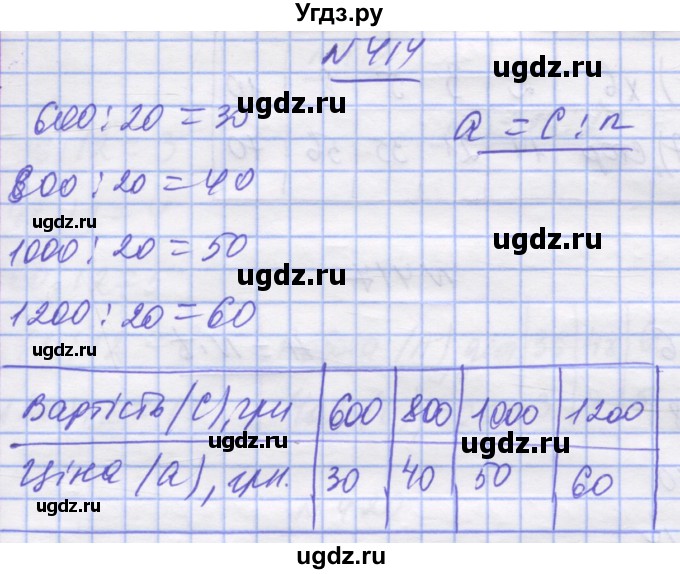 Угдз.ру
N 414
ugdz.ru
600 : 20 = 30
ugdz.ru
a = C : n
800 : 20 = 40
ugdz.ru
ugdz.ru
1000 : 20 = 50
ugdz.ru
1200 : 20 = 60
ugdz.ru
ugdz.ru
Вартість (С), грн 600 800 1000 1200
ugdz.ru
ugdz.ru
Ціна (а), грн. 30 40 50 60
ugdz.ru
ugdz.ru